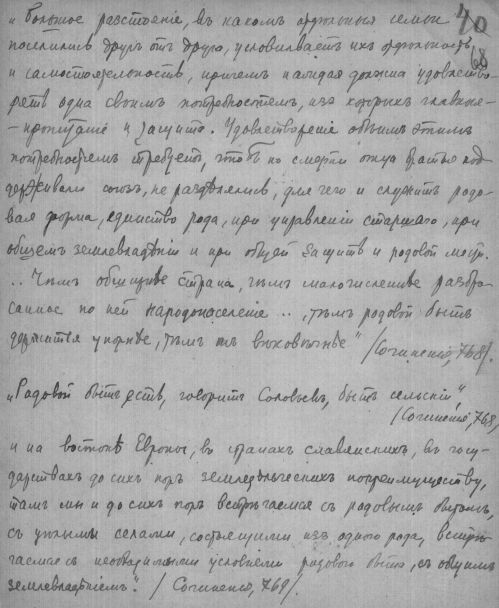 „Большое разстояніе, въ какомъ отдѣльныя семьи 40
поселились другъ отъ друга, условливаетъ ихъ отдѣльность 68
и самостоятельность, причемъ каждая должна удовлетво-
рять одна своимъ потребностямъ, изъ которыхъ главныя
– пропитаніе и защита. Удовлетвореніе обѣимъ этимъ
потребностямъ требуетъ, чтобъ по смерти отца братья под
держивали союзъ, не раздѣлялись, для чего и служитъ родо-
вая форма, единство рода, при управленіи старшаго, при
общемъ землевладѣніи и при общей защитѣ и родовой мести.
.. Чѣмъ обширнѣе страна, чѣмъ малочисленнѣе разбро-
санное по ней народонаселеніе .., тѣмъ родовой бытъ
держится упорнѣе, тѣмъ онъ вѣковѣчнѣе“ /Сочиненія, 768/.
„Родовой бытъ есть, говоритъ Соловьевъ, бытъ сельскій“,
/Сочиненія, 768,
и на востокѣ Европы, въ странахъ славянскихъ, въ госу-
дарствахъ до сихъ поръ земледѣльческихъ по преимуществу,
тамъ мы и до сихъ поръ встрѣчаемся съ родовымъ бытомъ,
съ цѣлыми селами, состоящими изъ одного рода, встрѣ-
чаемся съ необходимыми условіями родового быта, съ общимъ
землевладѣніемъ“. /Сочиненія, 769/.